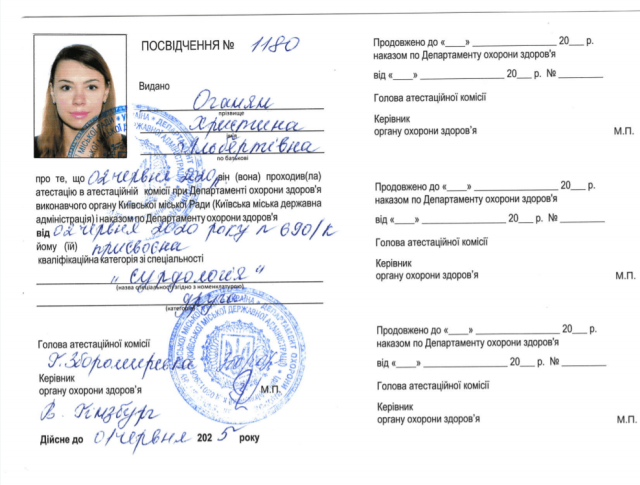 ПОСВІДЧЕННЯ № 1180
Видано
Оганян
прізвище
Христина
ім'я
Альбертівна
по батькові
про те, що 02 червня 2020 він (вона) проходив(ла)
атестацію в атестаційній комісії при Департаменті охорони здоров'я
виконавчого органу Київської міської Ради (Київська міська державна
адміністрація) і наказом по Департаменту охорони здоров'я
від 02 червня 2020 року № 690/К
йому (їй) присвоєна
кваліфікаційна категорія зі спеціальності
„ сурдологія “
(назва спеціальності згідно з номенклатурою)
друга
(категорія)
Голова атестаційної комісії
Керівник
органу охорони здоров'я М.П.
В. Гінзбург
Дійсне до 01 червня 2025 року
Продовжено до «____» ________________ 20___ р.
наказом по Департаменту охорони здоров'я
від «____» ________________ 20___ р. № ________
Голова атестаційної комісії
Керівник
органу охорони здоров'я М.П.
Продовжено до «____» ________________ 20___ р.
наказом по Департаменту охорони здоров'я
від «____» ________________ 20___ р. № ________
Голова атестаційної комісії
Керівник
органу охорони здоров'я М.П.
Продовжено до «____» ________________ 20___ р.
наказом по Департаменту охорони здоров'я
від «____» ________________ 20___ р. № ________
Голова атестаційної комісії
Керівник
органу охорони здоров'я М.П.